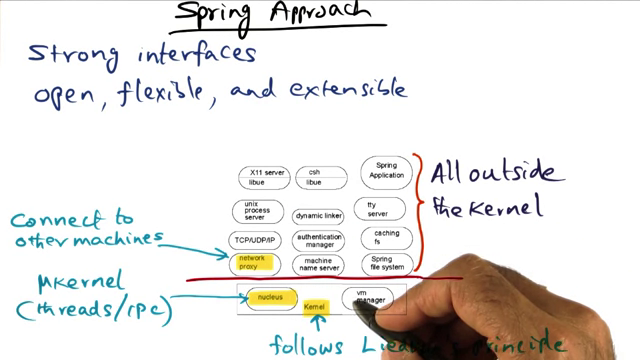 Spring Approach
Strong interfaces
open, flexible, and extensible
X11 server
libue
csh
libue
Spring
Application
unix
process
server
dynamic linker
tty
server
TCP/UDP/IP
authentication
manager
caching
fs
network
proxy
machine
name server
Spring
file system
All outside
the Kernel
Connect to
other machines
μKernel
(threads/IPC)
nucleus
Kernel
vm
manager
follows principle